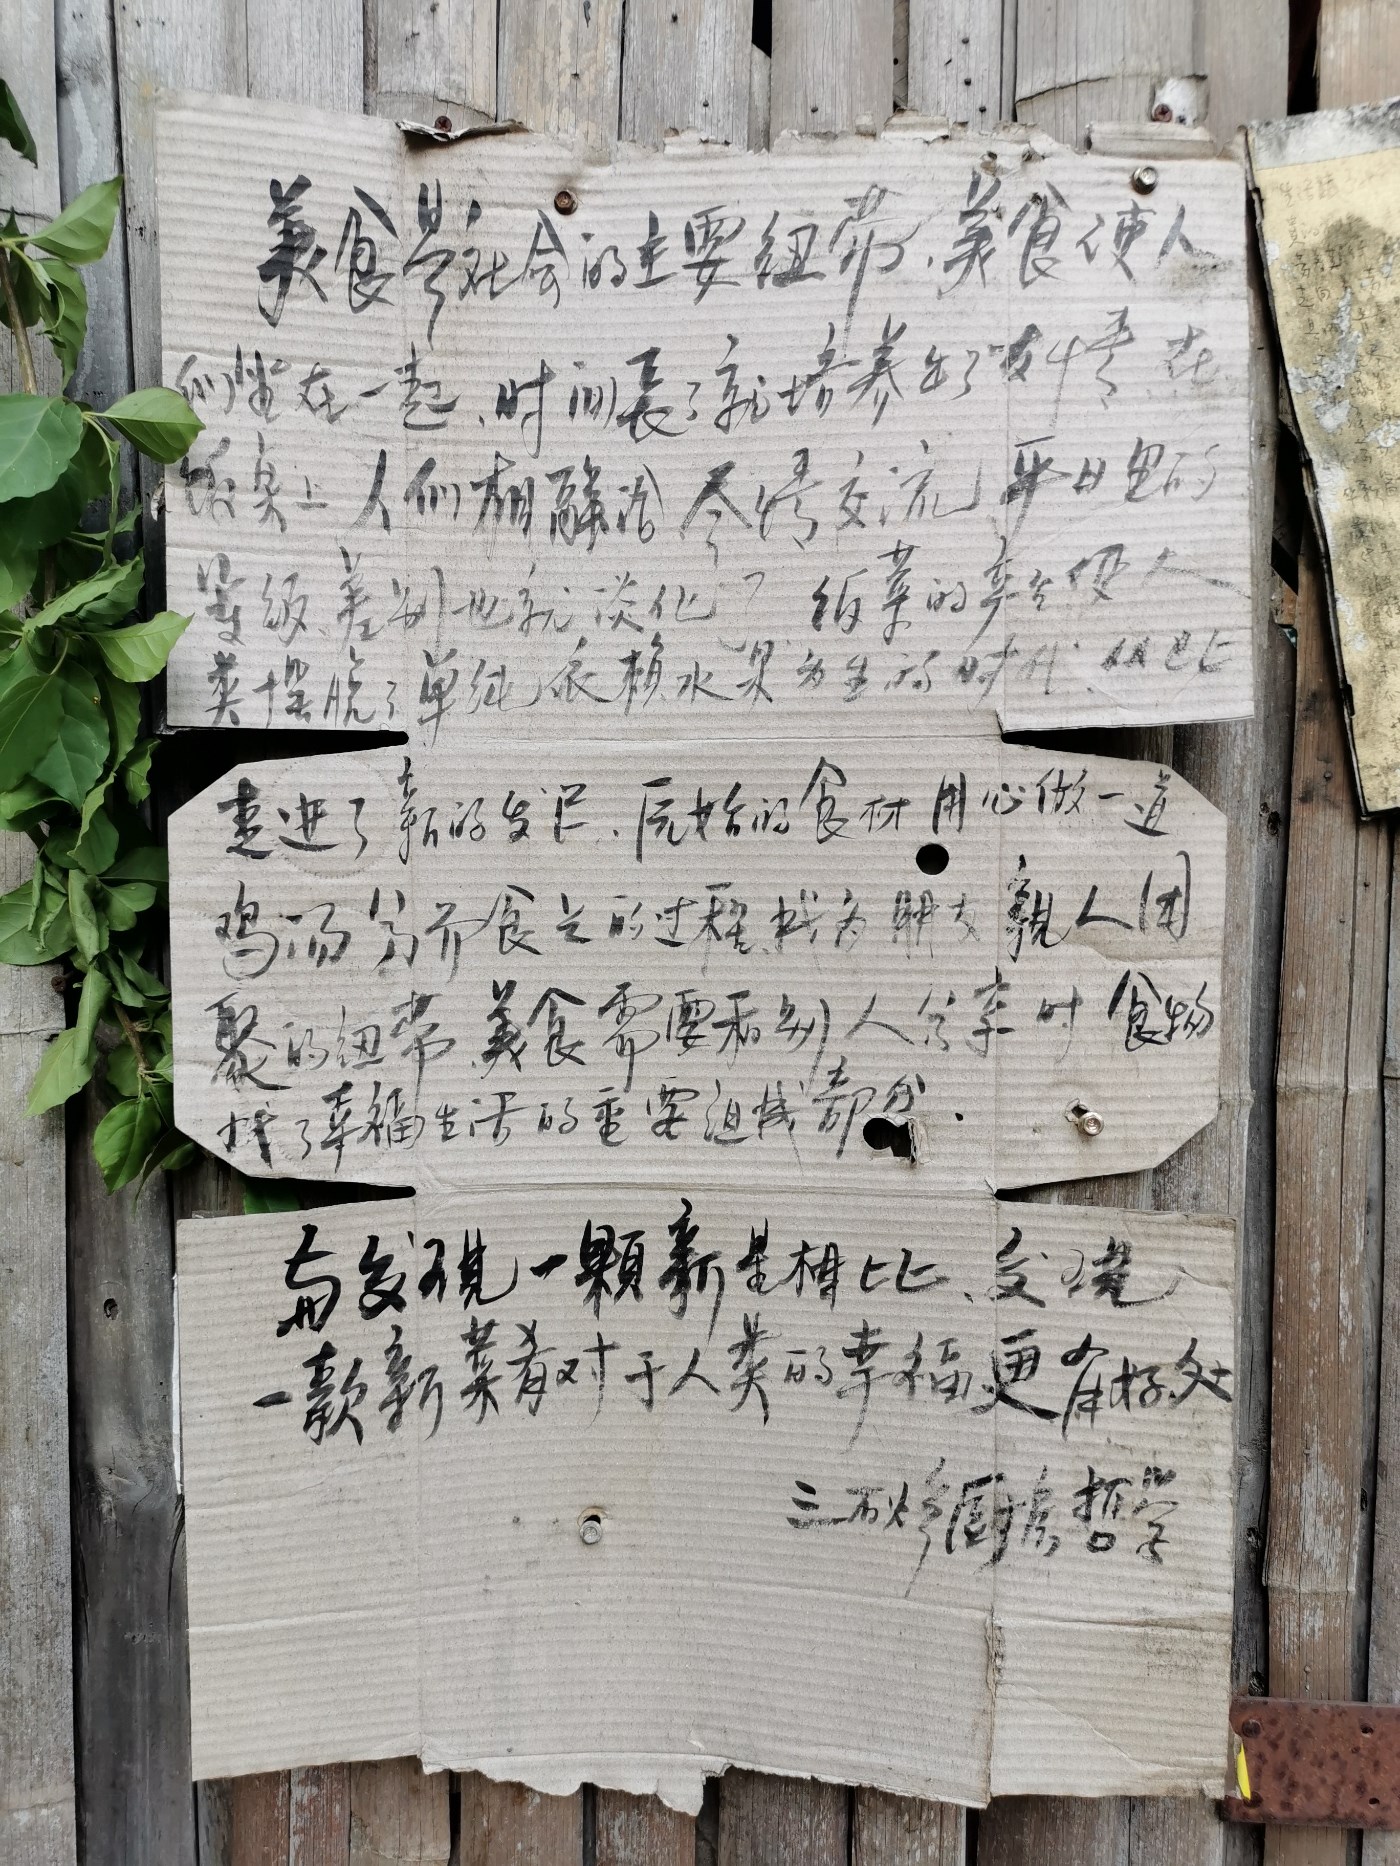 美食是社会的主要纽带、美食使人
们坐在一起、时间長了就培养出了友情 在
饭桌上 人们相融洽 尽情交流 平日里的
等级、差别也就淡化了 饭菜的享 人
类摆脱了单纯依赖水果为生的时代、从此
走进了新的发 、原始的食材 用心做一道
鸡汤 分 食之的过程、成为朋友 親人团
聚的纽带、美食需要和别人分享时 食物
成了幸福生活的重要组成部分.
与发现一颗新星相比、发现
一款新菜肴对于人类的幸福更有好处
三 厨房哲学